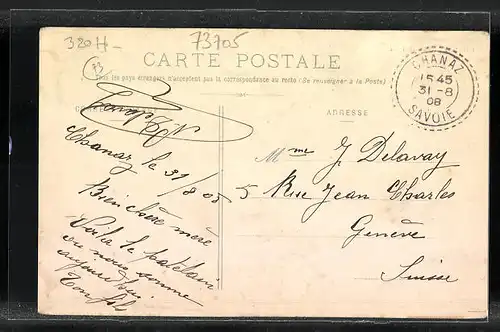 320H-
73705
73
CARTE POSTALE
Tous les pays étrangers n'acceptent pas la correspondance au recto (Se renseigner à la Poste)
ADRESSE
CHANAZ
15 45
31-8
08
SAVOIE
Chanaz le 31/8 05
Bien chère mère
Voilà le patelin
où nous sommes
aujourd'hui
Ton fils
Mme J. Delavay
5 Rue Jean Charles
Genève
Suisse